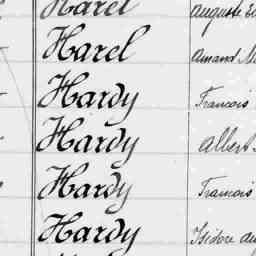 Harel Auguste
Harel Amand
Hardy Francois
Hardy Albert
Hardy Francois
Hardy Isidore